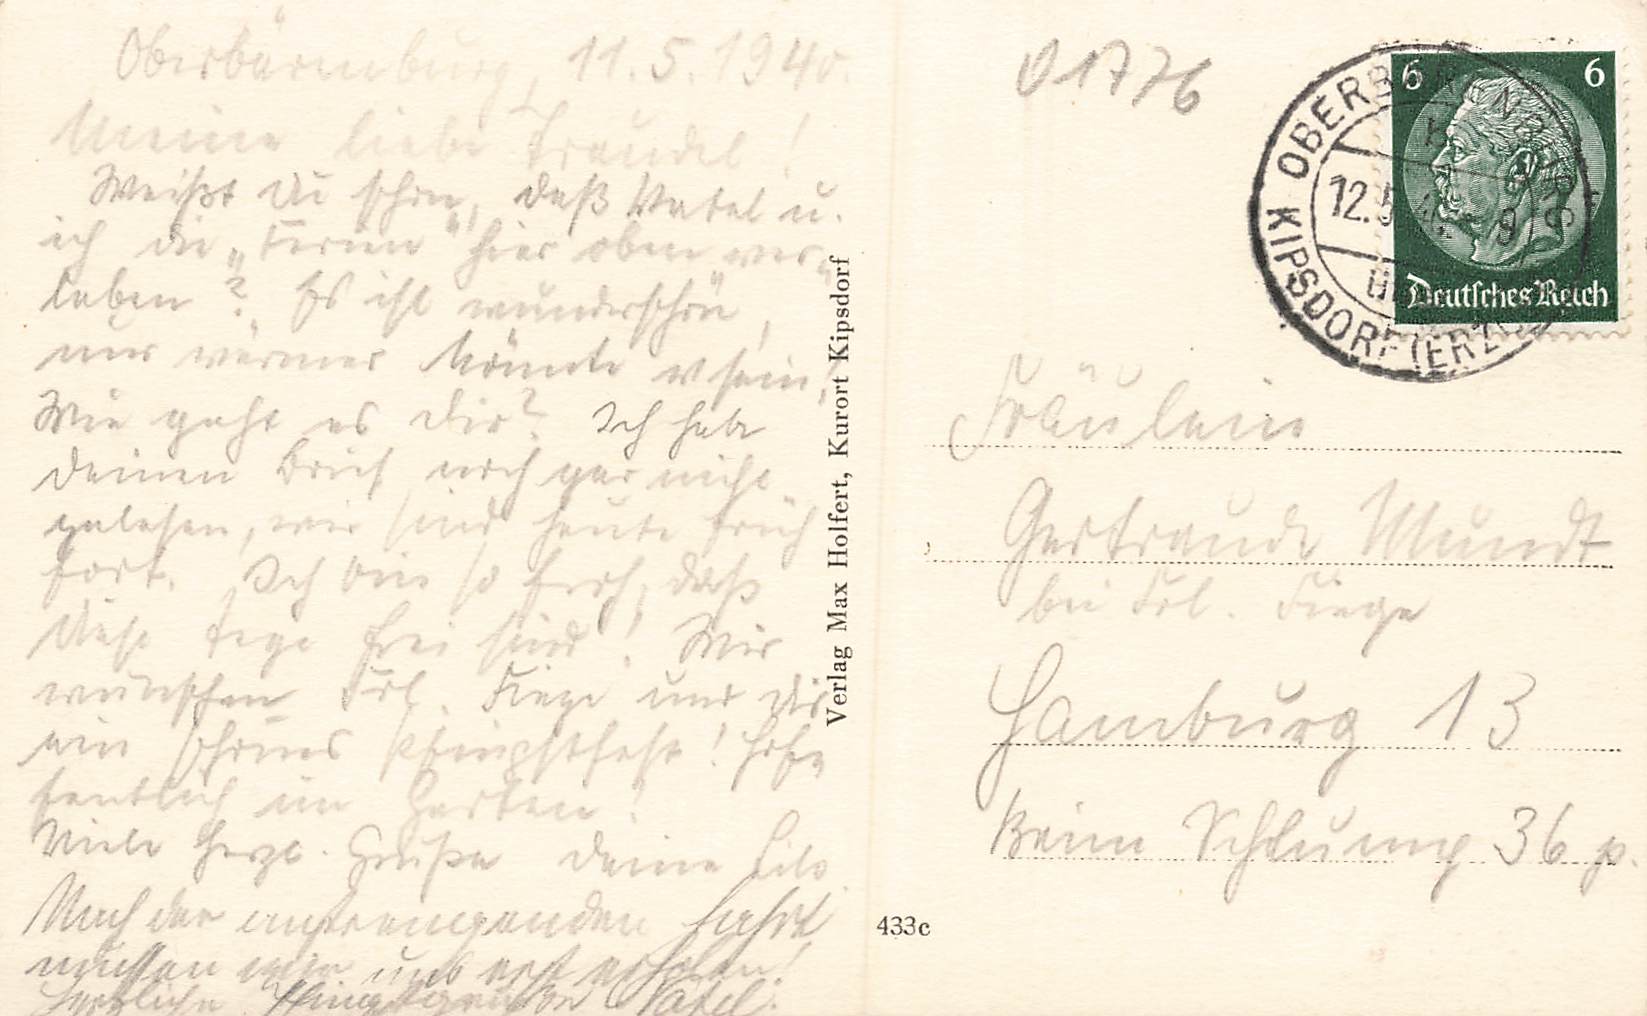 Oberbärenburg, 11.5.1940.
Meine liebe Traudel!
Weißt Du schon, daß Vatel u.
ich die „Ferien" hier oben ver-
leben? Es ist wunderschön,
nur wärmer könnte es sein,
Wie geht es Dir? Ich habe
Deinen Brief noch gar nicht
gelesen, wir sind heute früh
fort. Ich bin so froh, daß
diese Tage frei sind! Wir
wünschen Frl. Fiege und Dir
ein schönes Pfingstfest! Hof-
fentlich im Garten!
Viele herzl. Grüße Deine Lilo
Nach der anstrengenden Fahrt
müssen wir uns erst erholen!
Herzliche Pfingstgrüße Vatel.
Verlag Max Holfert, Kurort Kipsdorf
433c
01776
6 6
Deutsches Reich
OBERBÄRENBURG
12.5
KIPSDORF (ERZ
Fräulein
Gertraude Mundt
bei Frl. Fiege
Hamburg 13
Beim Schlump 36 p.